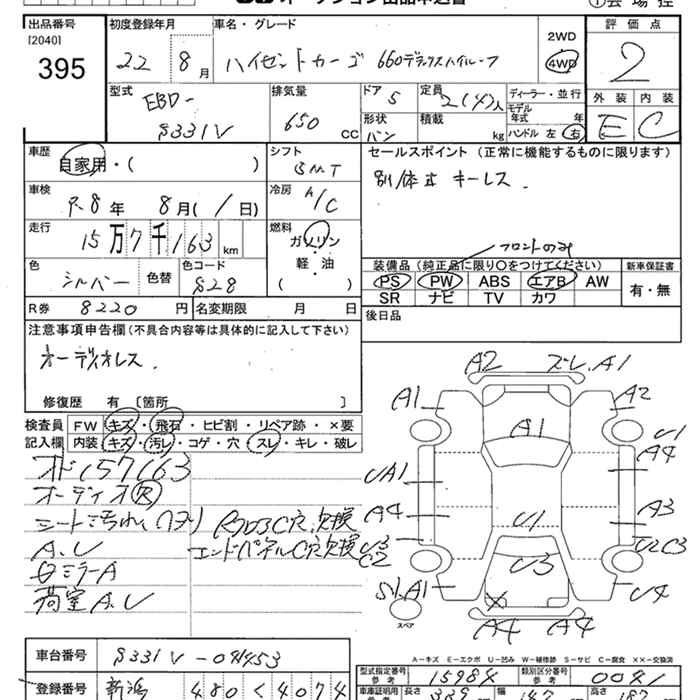 出品番号
[2040]
395
初度登録年月
22年 8月
車名・グレード
ハイゼットカーゴ 660デラックスハイルーフ
2WD
4WD
評価点
2
外装 内装
E C
型式
EBD-
S331V
排気量
650 cc
ドア 5
形状 バン
定員 2(4)人
積載 kg
ディーラー・並行
モデル年式 年式
ハンドル 左 右
車歴
自家用・( )
シフト
5MT
車検
R.8年 8月(1日)
冷房
A/C
走行
15万7千163 km
燃料
ガソリン
軽・油
( )
色
シルバー
色替
色コード
S28
R券 8220円
名変期限 月 日
セールスポイント (正常に機能するものに限ります)
別体式キーレス.
フロントのみ
装備品(純正品に限り○をつけてください)
PS PW ABS エアB AW
SR ナビ TV カワ
新車保証書
有・無
後日品
注意事項申告欄(不具合内容等は具体的に記入して下さい)
オーディオレス.
修復歴 有 [箇所 ]
検査員記入欄
FW キズ・飛石・ヒビ割・リペア跡・×要
内装 キズ・汚レ・コゲ・穴・スレ・キレ・破レ
オド157163
オーディオR
シート汚れ
A.U
ミラーA
荷室A.U
C穴交換
エンドパネルC穴交換
A2 スレ.A1
A1 A2
A1
U1
A4
UA1
A4 A3
U1
U3
C2
U2C3
U3
S1.A1
U4
A4 A4
スペア
A-キズ E-エクボ U-凹み W-補修跡 S-サビ C-腐食 XX-交換済
車台番号 S331V-091453
登録番号 新潟 480く4074
型式指定番号 参考 15984
類別区分番号 参考 0021
車庫証明用
長さ 339
幅 147
高さ 187